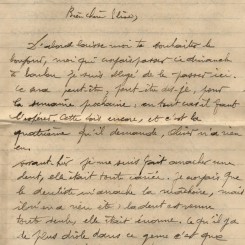 Bien chère
D'abord laisse moi te souhaiter le
bonjour, moi qui croyais passer ce dimanche
à
je suis obligé de le passer ici.
Ce sera peut-être, pour
la semaine prochaine; en tout cas il faut
Cette fois encore, et c'est la
quatrième qu'il demande, n'a rien
eu.
avant-hier je me suis fait arracher une
dent, elle était toute cariée. je croyais que
le dentiste m'arrache la mâchoire, mais
il n'en a rien été: la dent est venue
toute seule elle était énorme. Ce qu'il y a
de plus drôle dans ce genre c'est que